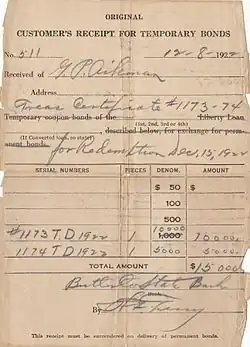 ORIGINAL
CUSTOMER'S RECEIPT FOR TEMPORARY BONDS
No. 511 12-8-1922
Received of G. P. Aikman
Address
Treas Certificate #1173-74
Temporary coupon bonds of the Liberty Loan
(1st, 2nd, 3rd or 4th)
(If Converted loan, so state) , described below, for exchange for perm-
anent bonds. for Redemption Dec, 15, 1922
SERIAL NUMBERS PIECES DENOM. AMOUNT
$ 50 $
100
500
#1173 T D 1922 1 10000 1,000 10000
1174 T D 1922 1 5000 5,000 5000
TOTAL AMOUNT $15000
Butler Co State Bank
Bank
By
This receipt must be surrendered on delivery of permanent bonds.